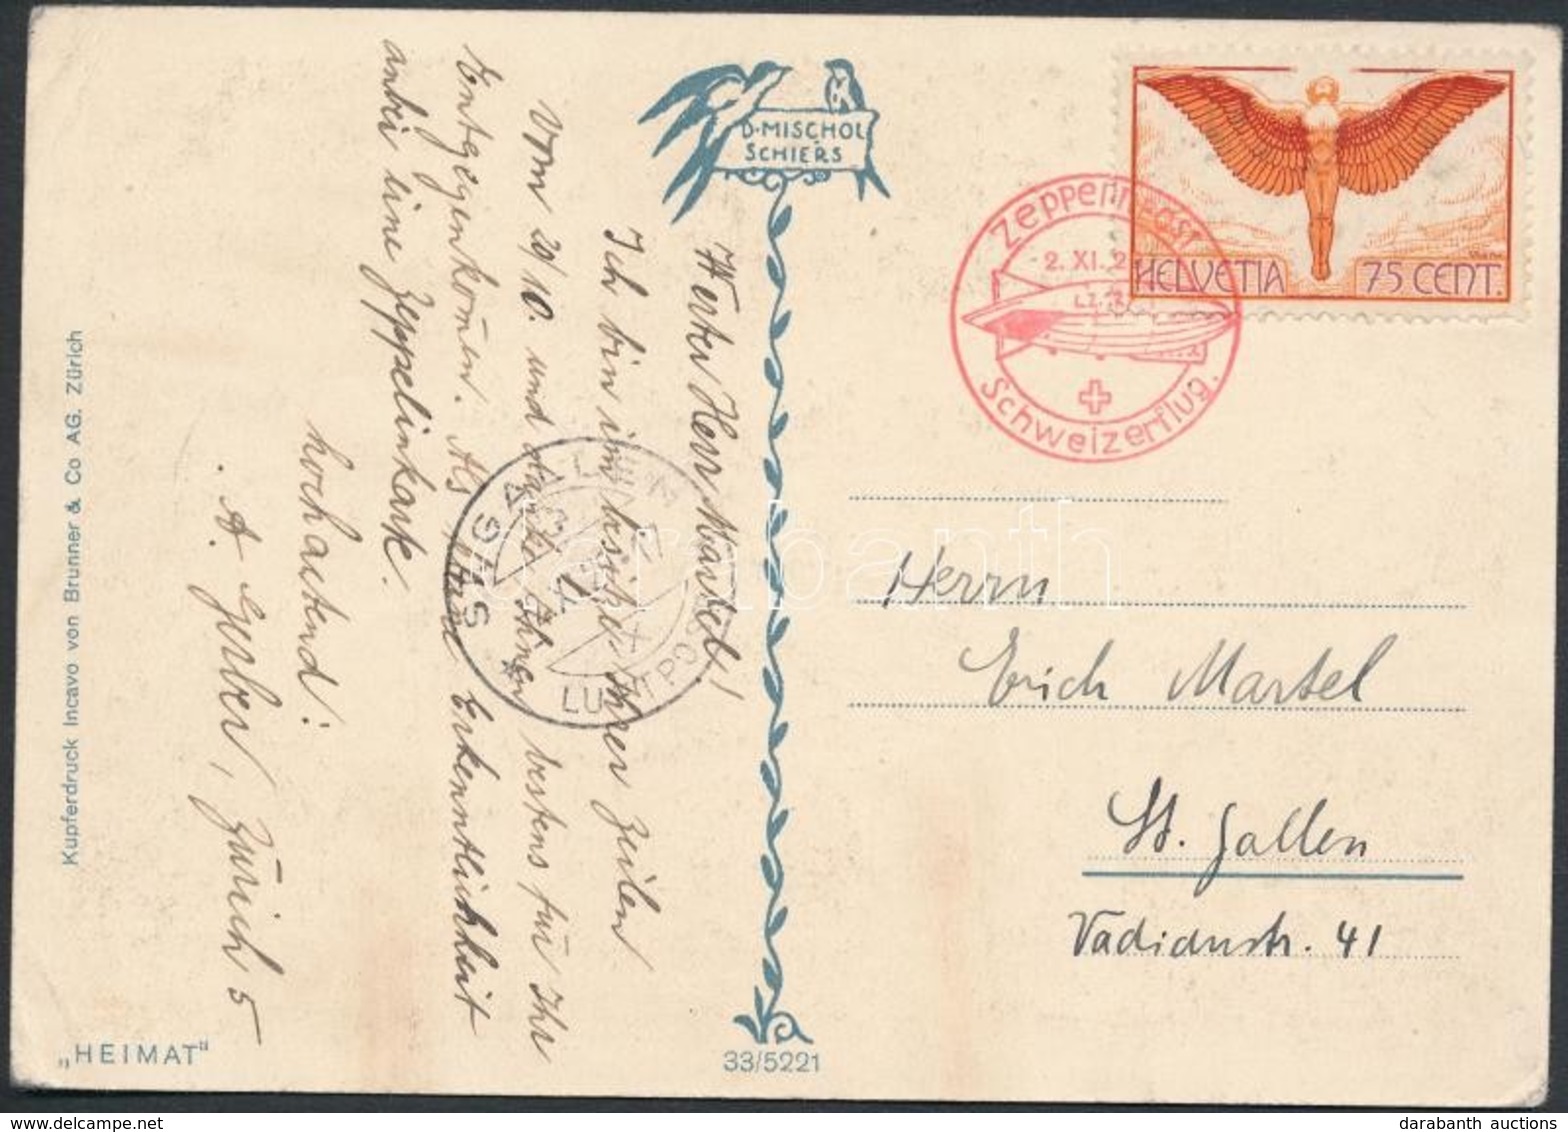 D. MISCHOL
SCHIERS
Zeppelinpost
2. XI. 2
LZ.
Schweizerflug.
HELVETIA 75 CENT.
Werter Herr Martel!
Ich bin im Besitze Ihrer Zeilen
vom 29/10. und danke Ihnen bestens für Ihr
Entgegenkom̄en. Als kleine Erkenntlichkeit
anbei eine Zeppelinkarte.
hochachtend:
A. Gerber, Zürich 5
ST. GALLEN
XI
LUFTPOST
Herrn
Erich Martel
St. Gallen
Vadianstr. 41
Kupferdruck Incavo von Brunner & Co AG. Zürich
„HEIMAT"
33/5221
darabanth
darabanth auctions